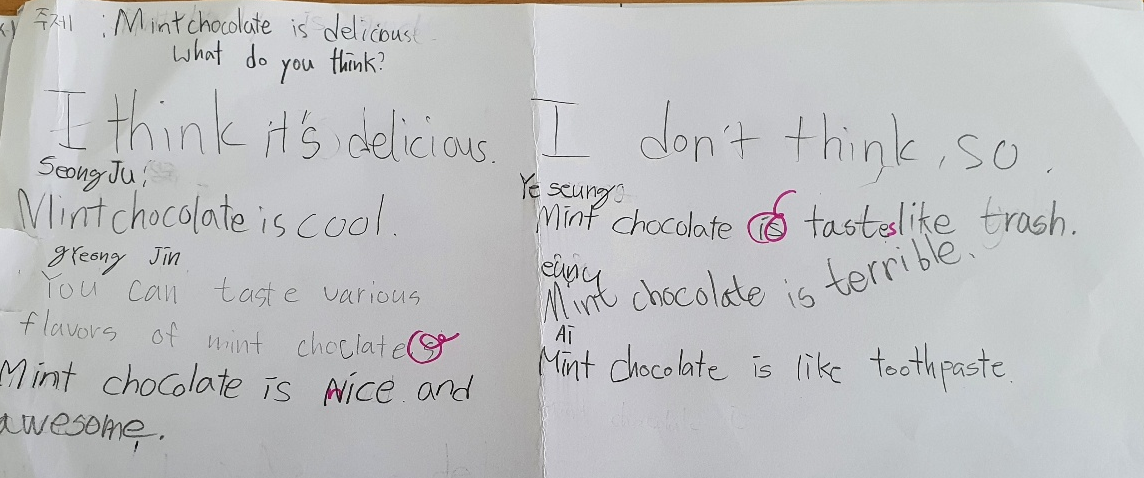 주제 : Mint chocolate is delicious.
What do you think?
I think it's delicious.
SeongJu;
Mint chocolate is cool.
gyeong Jin
You can taste various
flavors of mint choclate
Mint chocolate is Nice and
awesome.
I don't think, so.
Ye seung
Mint chocolate is tastes like trash.
Mint chocolate is terrible.
Ai
Mint chocolate is like toothpaste.